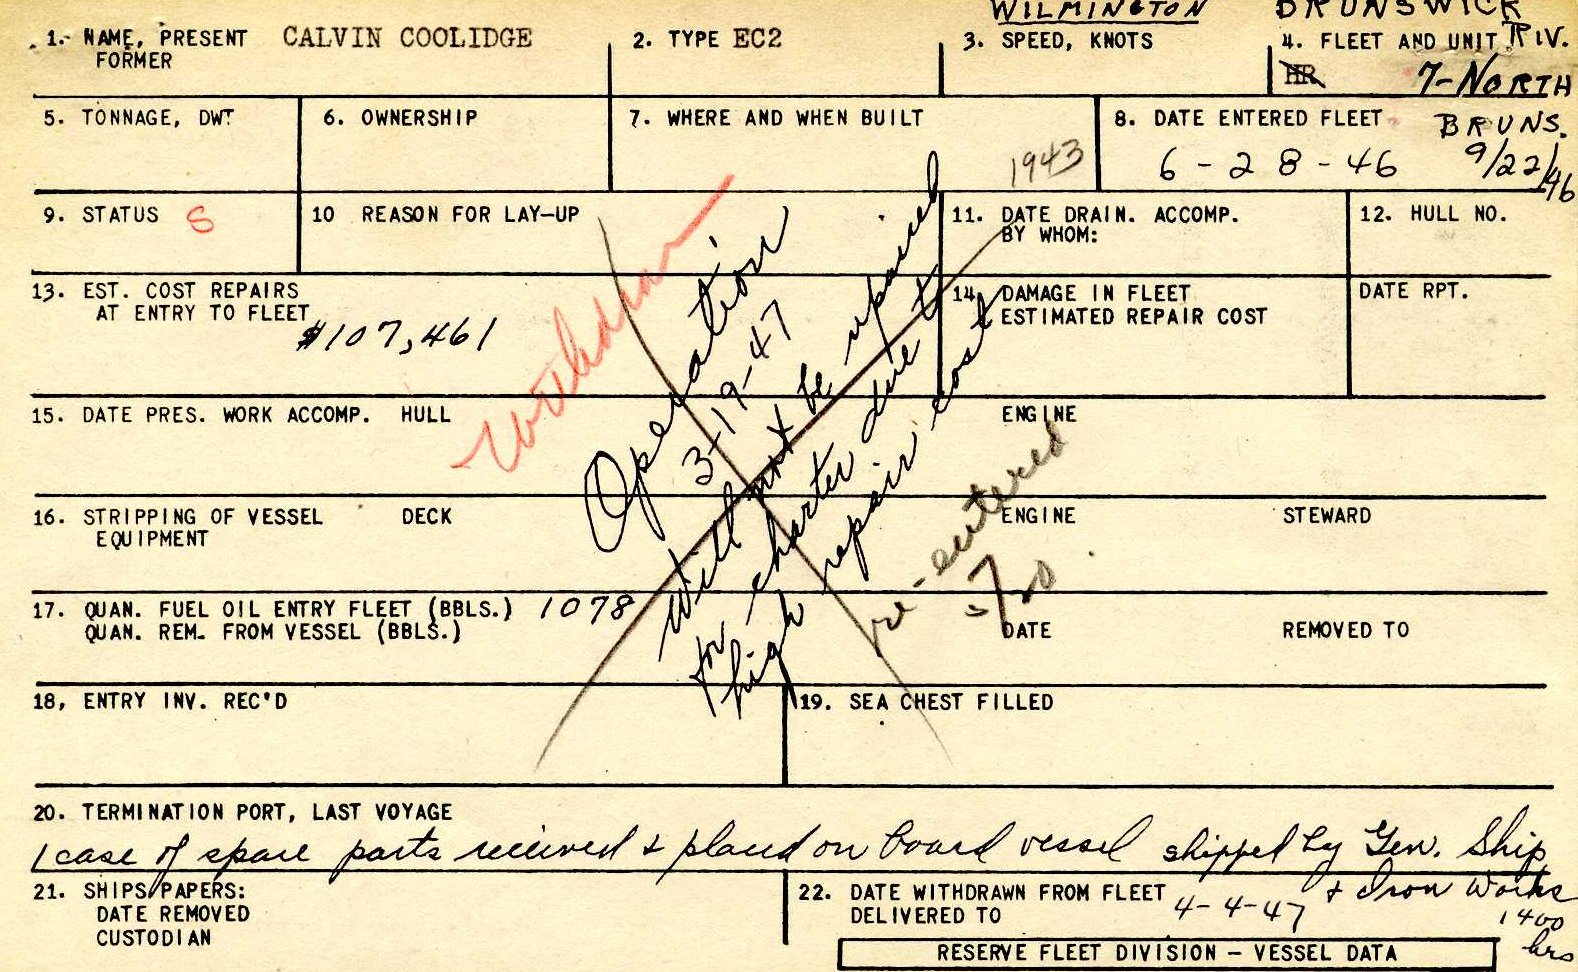 WILMINGTON BRUNSWICK
1. NAME, PRESENT CALVIN COOLIDGE 2. TYPE EC2 3. SPEED, KNOTS 4. FLEET AND UNIT RIV.
FORMER HR 7-NORTH
5. TONNAGE, DWT 6. OWNERSHIP 7. WHERE AND WHEN BUILT 8. DATE ENTERED FLEET BRUNS.
1943 6-28-46 9/22/46
9. STATUS S 10 REASON FOR LAY-UP 11. DATE DRAIN. ACCOMP. 12. HULL NO.
BY WHOM:
13. EST. COST REPAIRS 14. DAMAGE IN FLEET DATE RPT.
AT ENTRY TO FLEET ESTIMATED REPAIR COST
$107,461
Withdrawn
Operation
3-19-47
Will not be repaired
for charter due to
high repair cost
re-entered
5/20
15. DATE PRES. WORK ACCOMP. HULL ENGINE
16. STRIPPING OF VESSEL DECK ENGINE STEWARD
EQUIPMENT
17. QUAN. FUEL OIL ENTRY FLEET (BBLS.) 1078
QUAN. REM. FROM VESSEL (BBLS.) DATE REMOVED TO
18, ENTRY INV. REC'D 19. SEA CHEST FILLED
20. TERMINATION PORT, LAST VOYAGE
1 case of spare parts received & placed on board vessel shipped by Gen. Ship
& Iron Works
21. SHIPS PAPERS: 22. DATE WITHDRAWN FROM FLEET 4-4-47
DATE REMOVED DELIVERED TO 1400
CUSTODIAN hrs
RESERVE FLEET DIVISION – VESSEL DATA